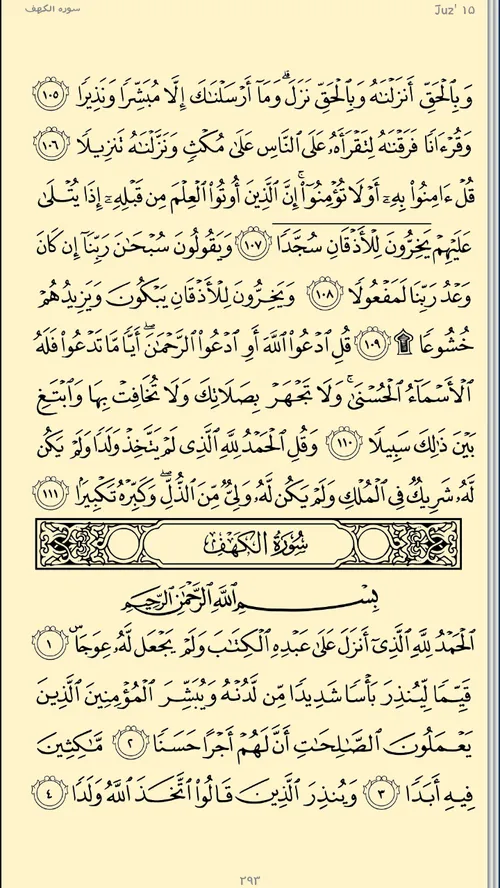 سورة الكهف
Juz' ١٥
وَبِٱلۡحَقِّ أَنزَلۡنَٰهُ وَبِٱلۡحَقِّ نَزَلَۗ وَمَآ أَرۡسَلۡنَٰكَ إِلَّا مُبَشِّرٗا وَنَذِيرٗا ١٠٥
وَقُرۡءَانٗا فَرَقۡنَٰهُ لِتَقۡرَأَهُۥ عَلَى ٱلنَّاسِ عَلَىٰ مُكۡثٖ وَنَزَّلۡنَٰهُ تَنزِيلٗا ١٠٦
قُلۡ ءَامِنُواْ بِهِۦٓ أَوۡ لَا تُؤۡمِنُوٓاْۚ إِنَّ ٱلَّذِينَ أُوتُواْ ٱلۡعِلۡمَ مِن قَبۡلِهِۦٓ إِذَا يُتۡلَىٰ
عَلَيۡهِمۡ يَخِرُّونَ لِلۡأَذۡقَانِۤ سُجَّدٗا ١٠٧ وَيَقُولُونَ سُبۡحَٰنَ رَبِّنَآ إِن كَانَ
وَعۡدُ رَبِّنَا لَمَفۡعُولٗا ١٠٨ وَيَخِرُّونَ لِلۡأَذۡقَانِ يَبۡكُونَ وَيَزِيدُهُمۡ
خُشُوعٗا ۩ ١٠٩ قُلِ ٱدۡعُواْ ٱللَّهَ أَوِ ٱدۡعُواْ ٱلرَّحۡمَٰنَۖ أَيّٗا مَّا تَدۡعُواْ فَلَهُ
ٱلۡأَسۡمَآءُ ٱلۡحُسۡنَىٰۚ وَلَا تَجۡهَرۡ بِصَلَاتِكَ وَلَا تُخَافِتۡ بِهَا وَٱبۡتَغِ
بَيۡنَ ذَٰلِكَ سَبِيلٗا ١١٠ وَقُلِ ٱلۡحَمۡدُ لِلَّهِ ٱلَّذِي لَمۡ يَتَّخِذۡ وَلَدٗا وَلَمۡ يَكُن
لَّهُۥ شَرِيكٞ فِي ٱلۡمُلۡكِ وَلَمۡ يَكُن لَّهُۥ وَلِيّٞ مِّنَ ٱلذُّلِّۖ وَكَبِّرۡهُ تَكۡبِيرَۢا ١١١
سُورَةُ الكَهۡفِ
بِسۡمِ ٱللَّهِ ٱلرَّحۡمَٰنِ ٱلرَّحِيمِ
ٱلۡحَمۡدُ لِلَّهِ ٱلَّذِيٓ أَنزَلَ عَلَىٰ عَبۡدِهِ ٱلۡكِتَٰبَ وَلَمۡ يَجۡعَل لَّهُۥ عِوَجَاۜ ١
قَيِّمٗا لِّيُنذِرَ بَأۡسٗا شَدِيدٗا مِّن لَّدُنۡهُ وَيُبَشِّرَ ٱلۡمُؤۡمِنِينَ ٱلَّذِينَ
يَعۡمَلُونَ ٱلصَّٰلِحَٰتِ أَنَّ لَهُمۡ أَجۡرًا حَسَنٗا ٢ مَّٰكِثِينَ
فِيهِ أَبَدٗا ٣ وَيُنذِرَ ٱلَّذِينَ قَالُواْ ٱتَّخَذَ ٱللَّهُ وَلَدٗا ٤
٢٩٣